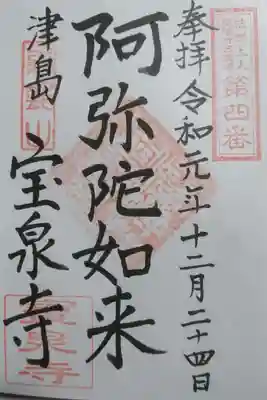 奉拝 令和元年十二月二十四日
第四番
阿弥陀如来
津島 宝泉寺